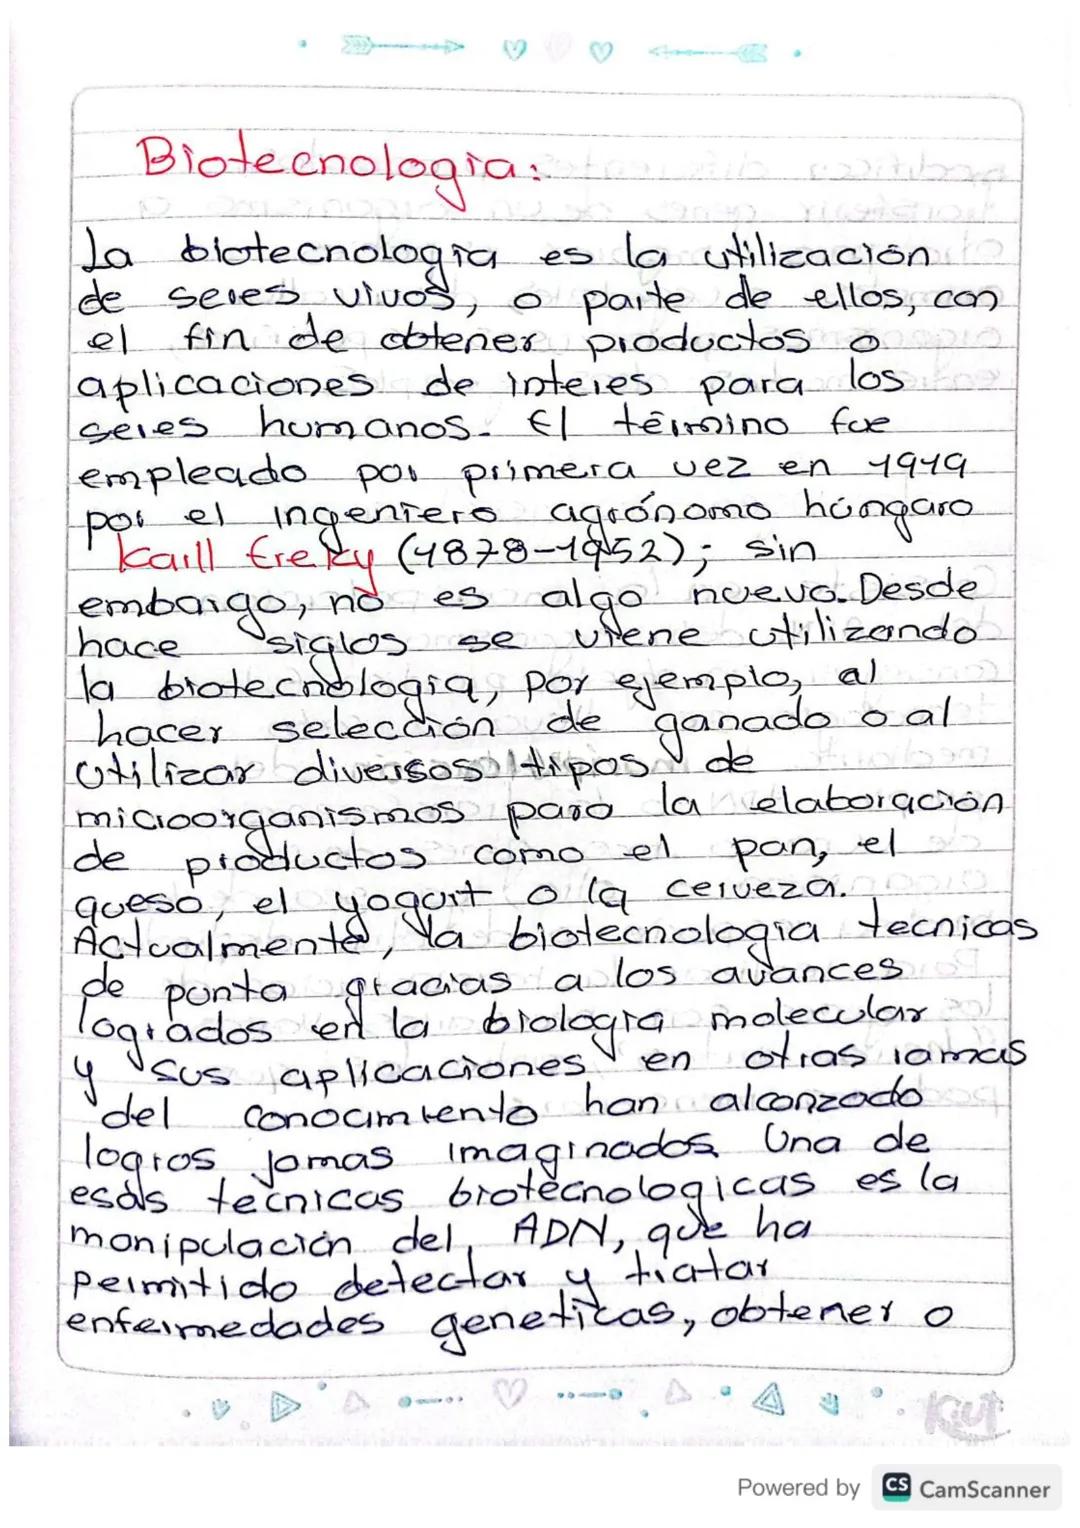 Biotecnologia:
La biotecnologia es la utilización
de seres vivos, o parte de ellos, con
el fin de obtener productos o
aplicaciones de interes para los
seres humanos. El término fue
empleado por primera vez en 1919
por el ingeniero agrónomo húngaro
Karll Ereky (1878-1952); sin
embargo, no es algo nuevo. Desde
hace siglos se viene utilizando
la biotecnologia, por ejemplo, al
hacer selección de ganado o al
utilizar diversos tipos de
microorganismos para la elaboración
de productos como el pan, el
queso, el yogurt o la cerveza.
Actualmente, la biotecnologia tecnicas
de punta gracias a los avances
logrados en la biologia molecular
y sus aplicaciones en otras ramas
del conocimiento han alcanzado
logros jamas imaginados. Una de
esas tecnicas biotecnologicas es la
manipulación del ADN, que ha
permitido detectar y tratar
enfermedades geneticas, obtener o
Kiut
Powered by CS CamScanner